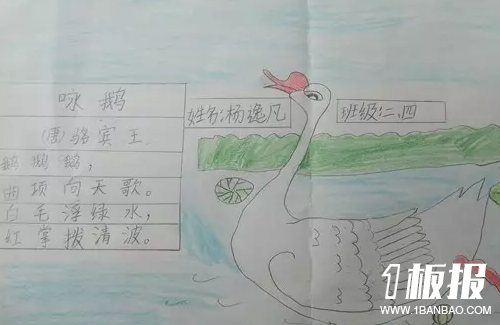 咏鹅
(唐)骆宾王
鹅鹅鹅,
曲项向天歌。
白毛浮绿水,
红掌拨清波。
姓名:杨逸凡
班级:二.四
1板报
WWW.1BANBAO.COM